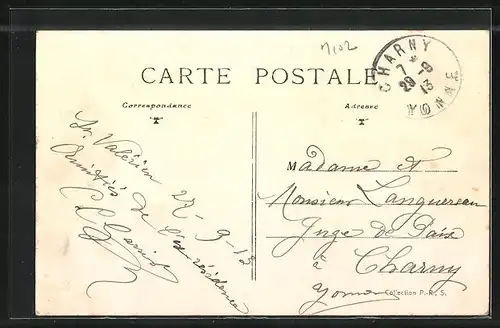 7102
CHARNY
7 * 8
29 - 9
13
YONNE
CARTE POSTALE
Correspondance
Adresse
St Valérien 27-9-13
Amitiés de
Madame et
Monsieur Languereau
Juge de Paix
à
Charny
Yonne
Collection P.-R. S.